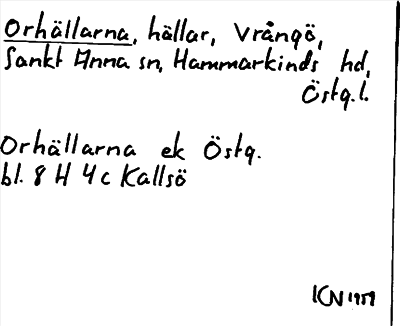 Orhällarna, hällar, Vrångö,
Sankt Anna sn, Hammarkinds hd,
Östg.l.
Orhällarna ek Östg.
bl. 8 H 4 c Kallsö
ICN 1959